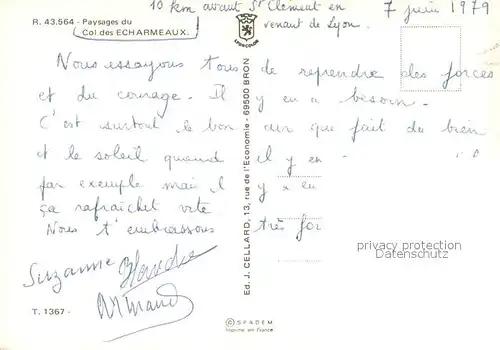 10 km avant St Clément en
venant de Lyon.
7 juin 1979
R. 43.564 - Paysages du
Col des ECHARMEAUX.
LYON-COLOR
Nous essayons tous de reprendre des forces
et du courage. Il y en a besoin.
C'est surtout le bon air que fait du bien
et le soleil quand il y en
par exemple mais il y a eu
ça rafraîchit vite
Nous t'embrassons très for
Suzanne
Armand
T. 1367 -
Ed. J. CELLARD, 13, rue de l'Economie - 69500 BRON
privacy protection
Datenschutz
© SPADEM
Imprimé en France